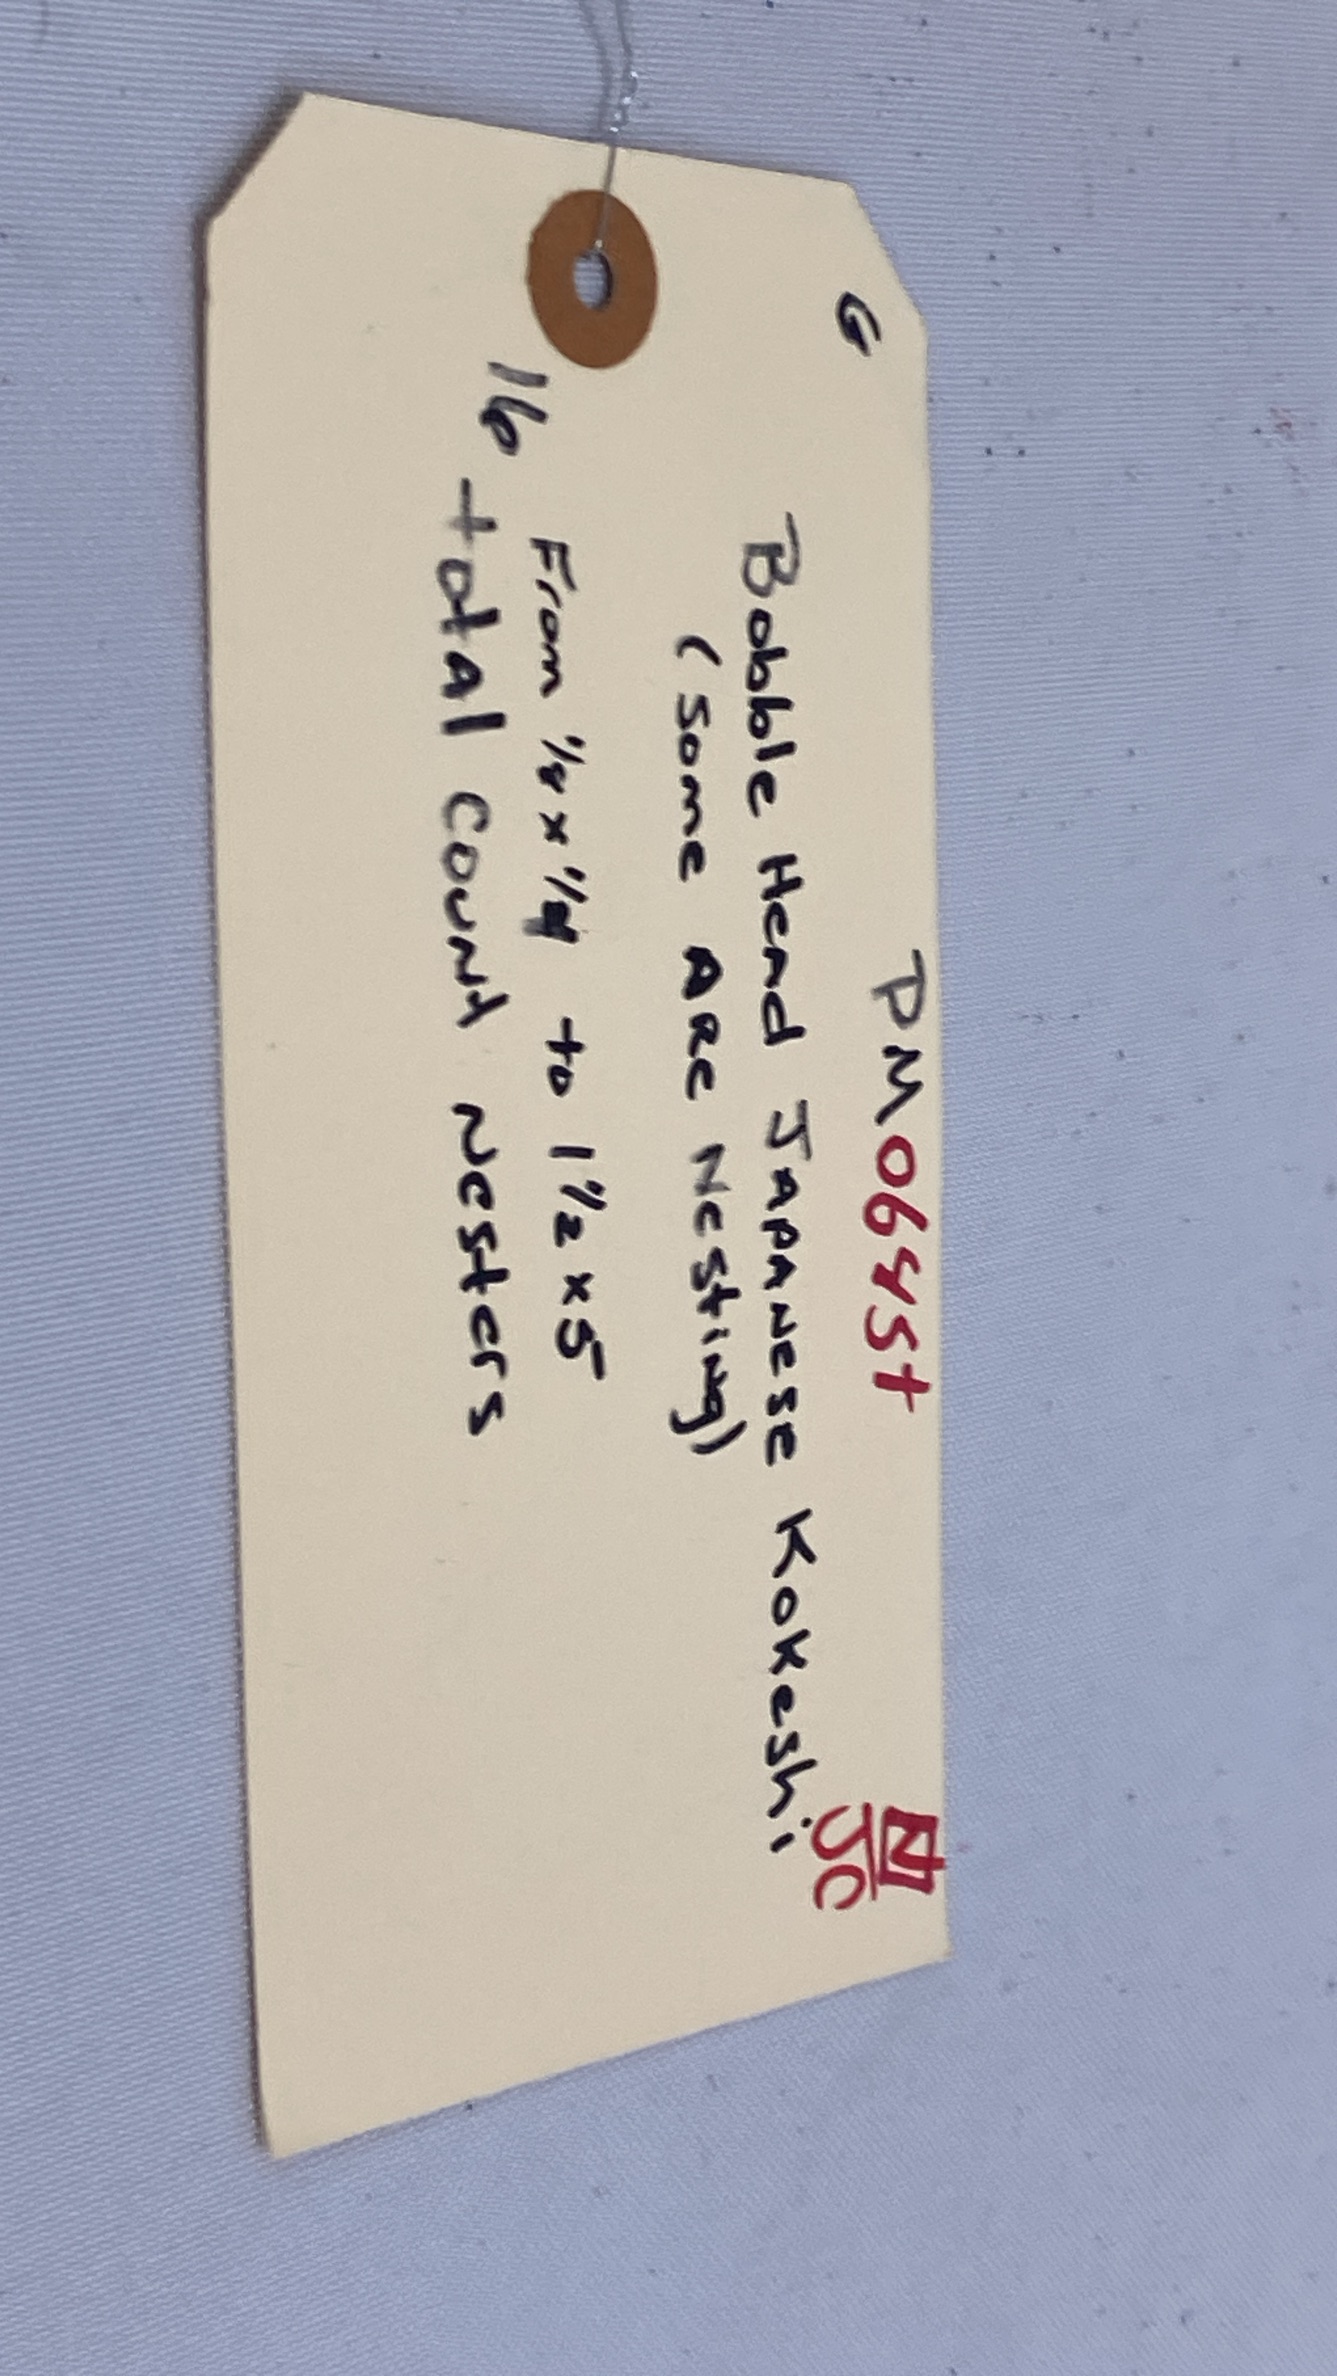 G
PM0645t
N
JC
Bobble Head JAPANESE Kokeshi
(Some ARe Nesting)
From 1/8 x 1/4 to 1 1/2 x 5
16 total count Nesters